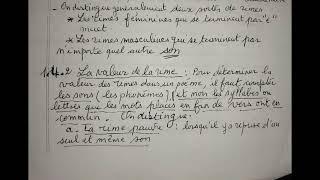 On distingue généralement deux sortes de rimes :
* Les rimes féminines qui se terminent par "e" muet
* Les rimes masculines qui se terminent par
n'importe quel autre son
2 La valeur de la rime : Pour déterminer la
valeur des rimes dans un poème, il faut
les sons (les phonèmes) et non les syllabes ou
lettres que les mots placés en fin de vers ont en
commun. On distingue :
a- La rime pauvre : lorsqu'il y a reprise d'un
seul et même son